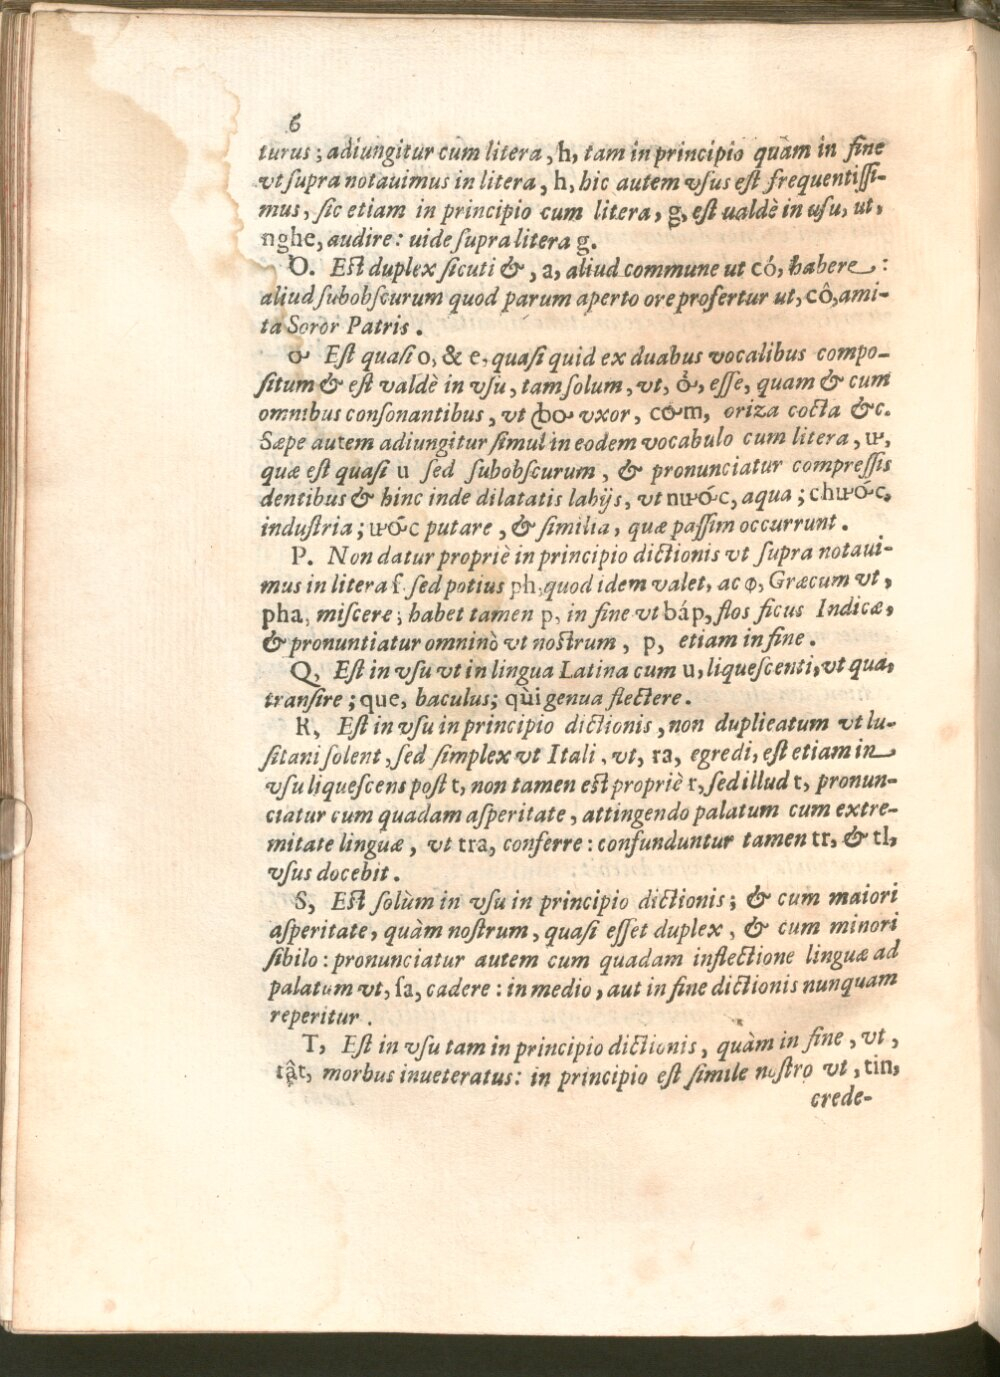 6
turus; adiungitur cum litera, h, tam in principio quàm in fine
vt supra notauimus in litera, h, hic autem vsus est frequentissi-
mus, sic etiam in principio cum litera, g, est ualdè in usu, ut,
nghe, audire: uide supra litera g.
O. Est duplex sicuti &, a, aliud commune ut có, habere:
aliud subobscurum quod parum aperto ore profertur ut, cô, ami-
ta Soror Patris.
ơ Est quasi o, & e, quasi quid ex duabus vocalibus compo-
situm & est valdè in vsu, tam solum, vt, ở, esse, quam & cum
omnibus consonantibus, vt ꞗơ vxor, cơm, oriza cocta &c.
Sæpe autem adiungitur simul in eodem vocabulo cum litera, ư,
quæ est quasi u sed subobscurum, & pronunciatur compressis
dentibus & hinc inde dilatatis labijs, vt nước, aqua; chước,
industria; ước putare, & similia, quæ passim occurrunt.
P. Non datur propriè in principio dictionis vt supra notaui-
mus in litera f. sed potius ph, quod idem valet, ac φ, Græcum vt,
pha, miscere; habet tamen p, in fine vt báp, flos ficus Indicæ,
& pronuntiatur omninò vt nostrum, p, etiam in fine.
Q, Est in vsu vt in lingua Latina cum u, liquescenti, vt qua,
transire; que, baculus; qùi genua flectere.
R, Est in vsu in principio dictionis, non duplicatum vt lu-
sitani solent, sed simplex vt Itali, vt, ra, egredi, est etiam in
vsu liquescens post t, non tamen est propriè r, sed illud t, pronun-
ciatur cum quadam asperitate, attingendo palatum cum extre-
mitate linguæ, vt tra, conferre: confunduntur tamen tr, & tl,
vsus docebit.
S, Est solùm in vsu in principio dictionis; & cum maiori
asperitate, quàm nostrum, quasi esset duplex, & cum minori
sibilo: pronunciatur autem cum quadam inflectione linguæ ad
palatum vt, sa, cadere: in medio, aut in fine dictionis nunquam
reperitur.
T, Est in vsu tam in principio dictionis, quàm in fine, vt,
tật, morbus inueteratus: in principio est simile nostro vt, tin,
crede-